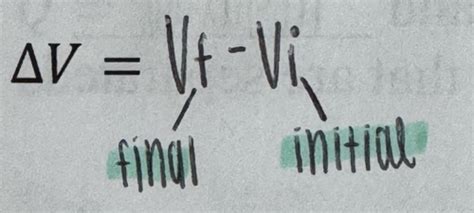 ΔV = Vf - Vi
final initial